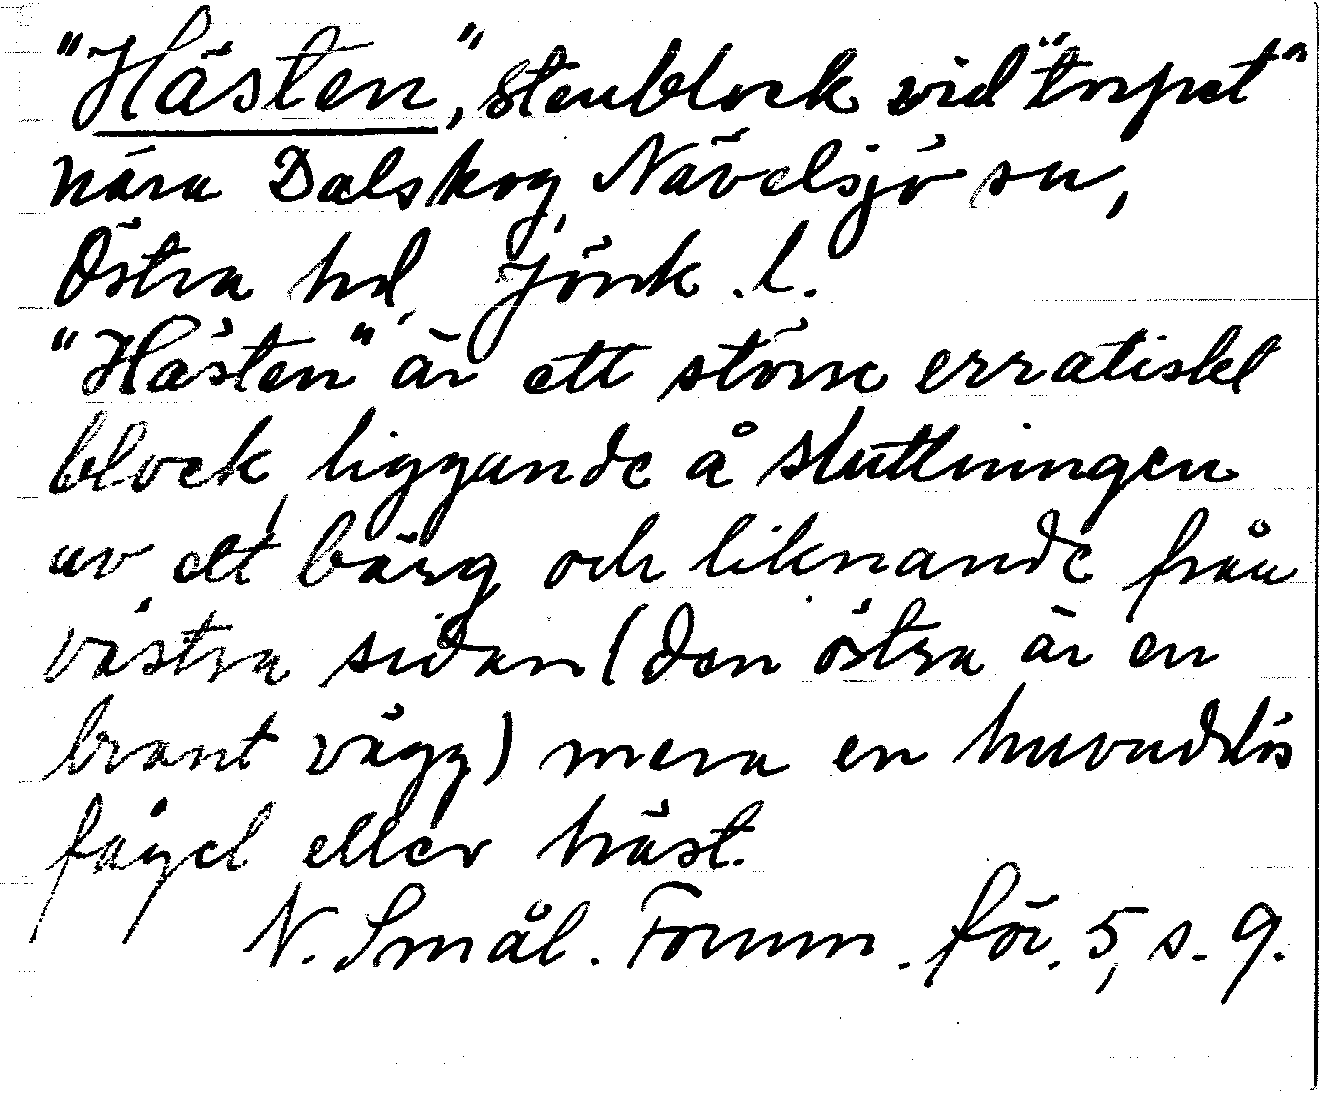 "Hästen", stenblock vid "torpet"
nära Dalskog, Nävelsjö sn,
Östra hd, Jönk. l.
"Hästen" är ett större erratiskt
block, liggande å sluttningen
av ett bärg och liknande från
västra sidan (den östra är en
brant vägg) mera en huvudlös
fågel eller häst.
N. Smål. Fornm. för. 5, s. 9.